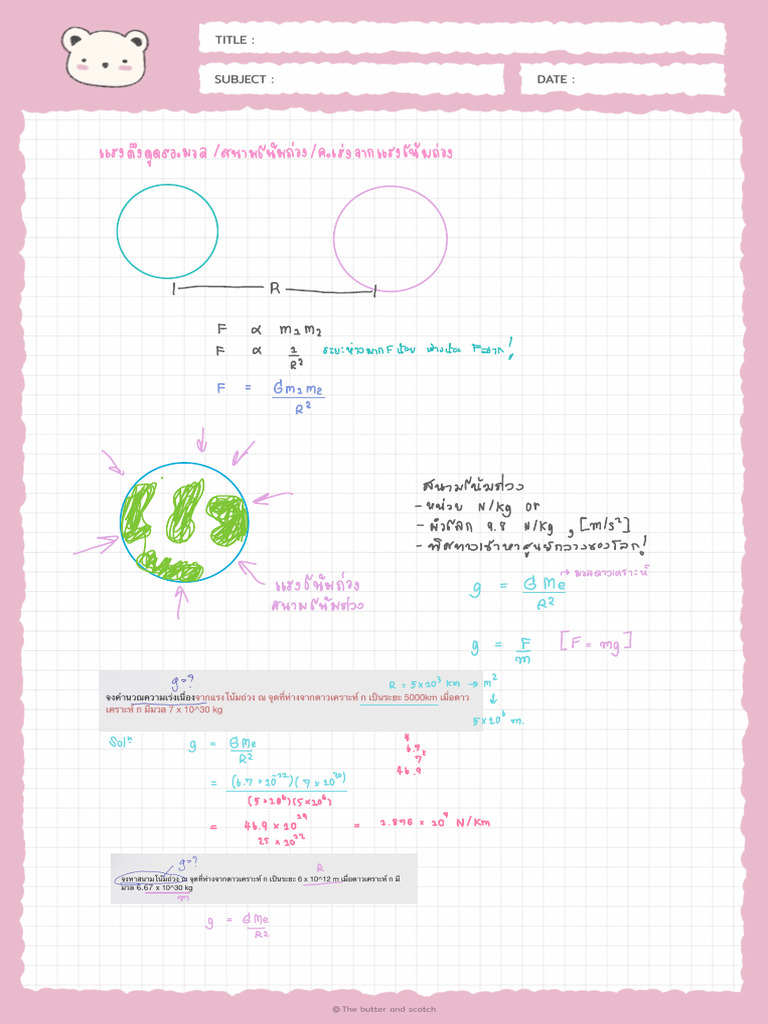 TITLE :
SUBJECT :
DATE :
แรงดึงดูดระหว่างมวล /สนามโน้มถ่วง/ความเร่งจากแรงโน้มถ่วง
R
F ∝ m₁m₂
F ∝ 1/R² ระยะห่างมาก F น้อย ห่างน้อย F มาก!
F = Gm₁m₂/R²
สนามโน้มถ่วง
- หน่วย N/kg or
- ผิวโลก 9.8 N/kg , [m/s²]
- ทิศทางเข้าหาศูนย์กลางของโลก!
แรงโน้มถ่วง
สนามโน้มถ่วง
g = GMe/R² → มวลดาวเคราะห์
g = F/m [F = mg]
g = ?
R = 5×10³ km → m²
จงคำนวณความเร่งเนื่องจากแรงโน้มถ่วง ณ จุดที่ห่างจากดาวเคราะห์ ก เป็นระยะ 5000km เมื่อดาว
เคราะห์ ก มีมวล 7 x 10^30 kg
5×10⁶ m.
Solⁿ g = GMe/R²
6.7
7
46.9
= (6.7 × 10⁻¹¹)(7 × 10³⁰)/(5 × 10⁶)(5×10⁶)
= 46.9 × 10¹⁹/25 × 10¹² = 1.876 × 10⁷ N/Km
g = ?
R
จงหาสนามโน้มถ่วง ณ จุดที่ห่างจากดาวเคราะห์ ก เป็นระยะ 6 x 10^12 m เมื่อดาวเคราะห์ ก มี
มวล 6.67 x 10^30 kg
m
g = GMe/R²
© The butter and scotch